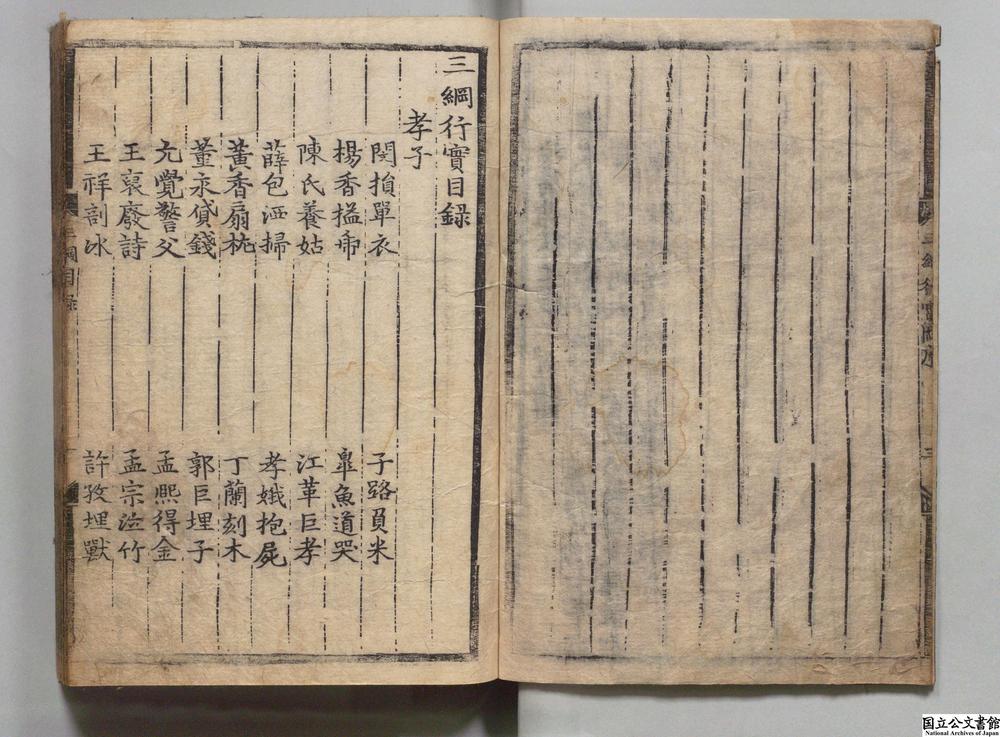 三綱行實目錄
孝子
閔損單衣 子路負米
楊香搤帍 臯魚道哭
陳氏養姑 江革巨孝
薛包洒掃 孝娥抱屍
黃香扇枕 丁蘭刻木
董永貸錢 郭巨埋子
元覺警父 孟熙得金
王裒廢詩 孟宗泣竹
王祥剖冰 許孜埋獸
三綱目錄
国立公文書館
National Archives of Japan